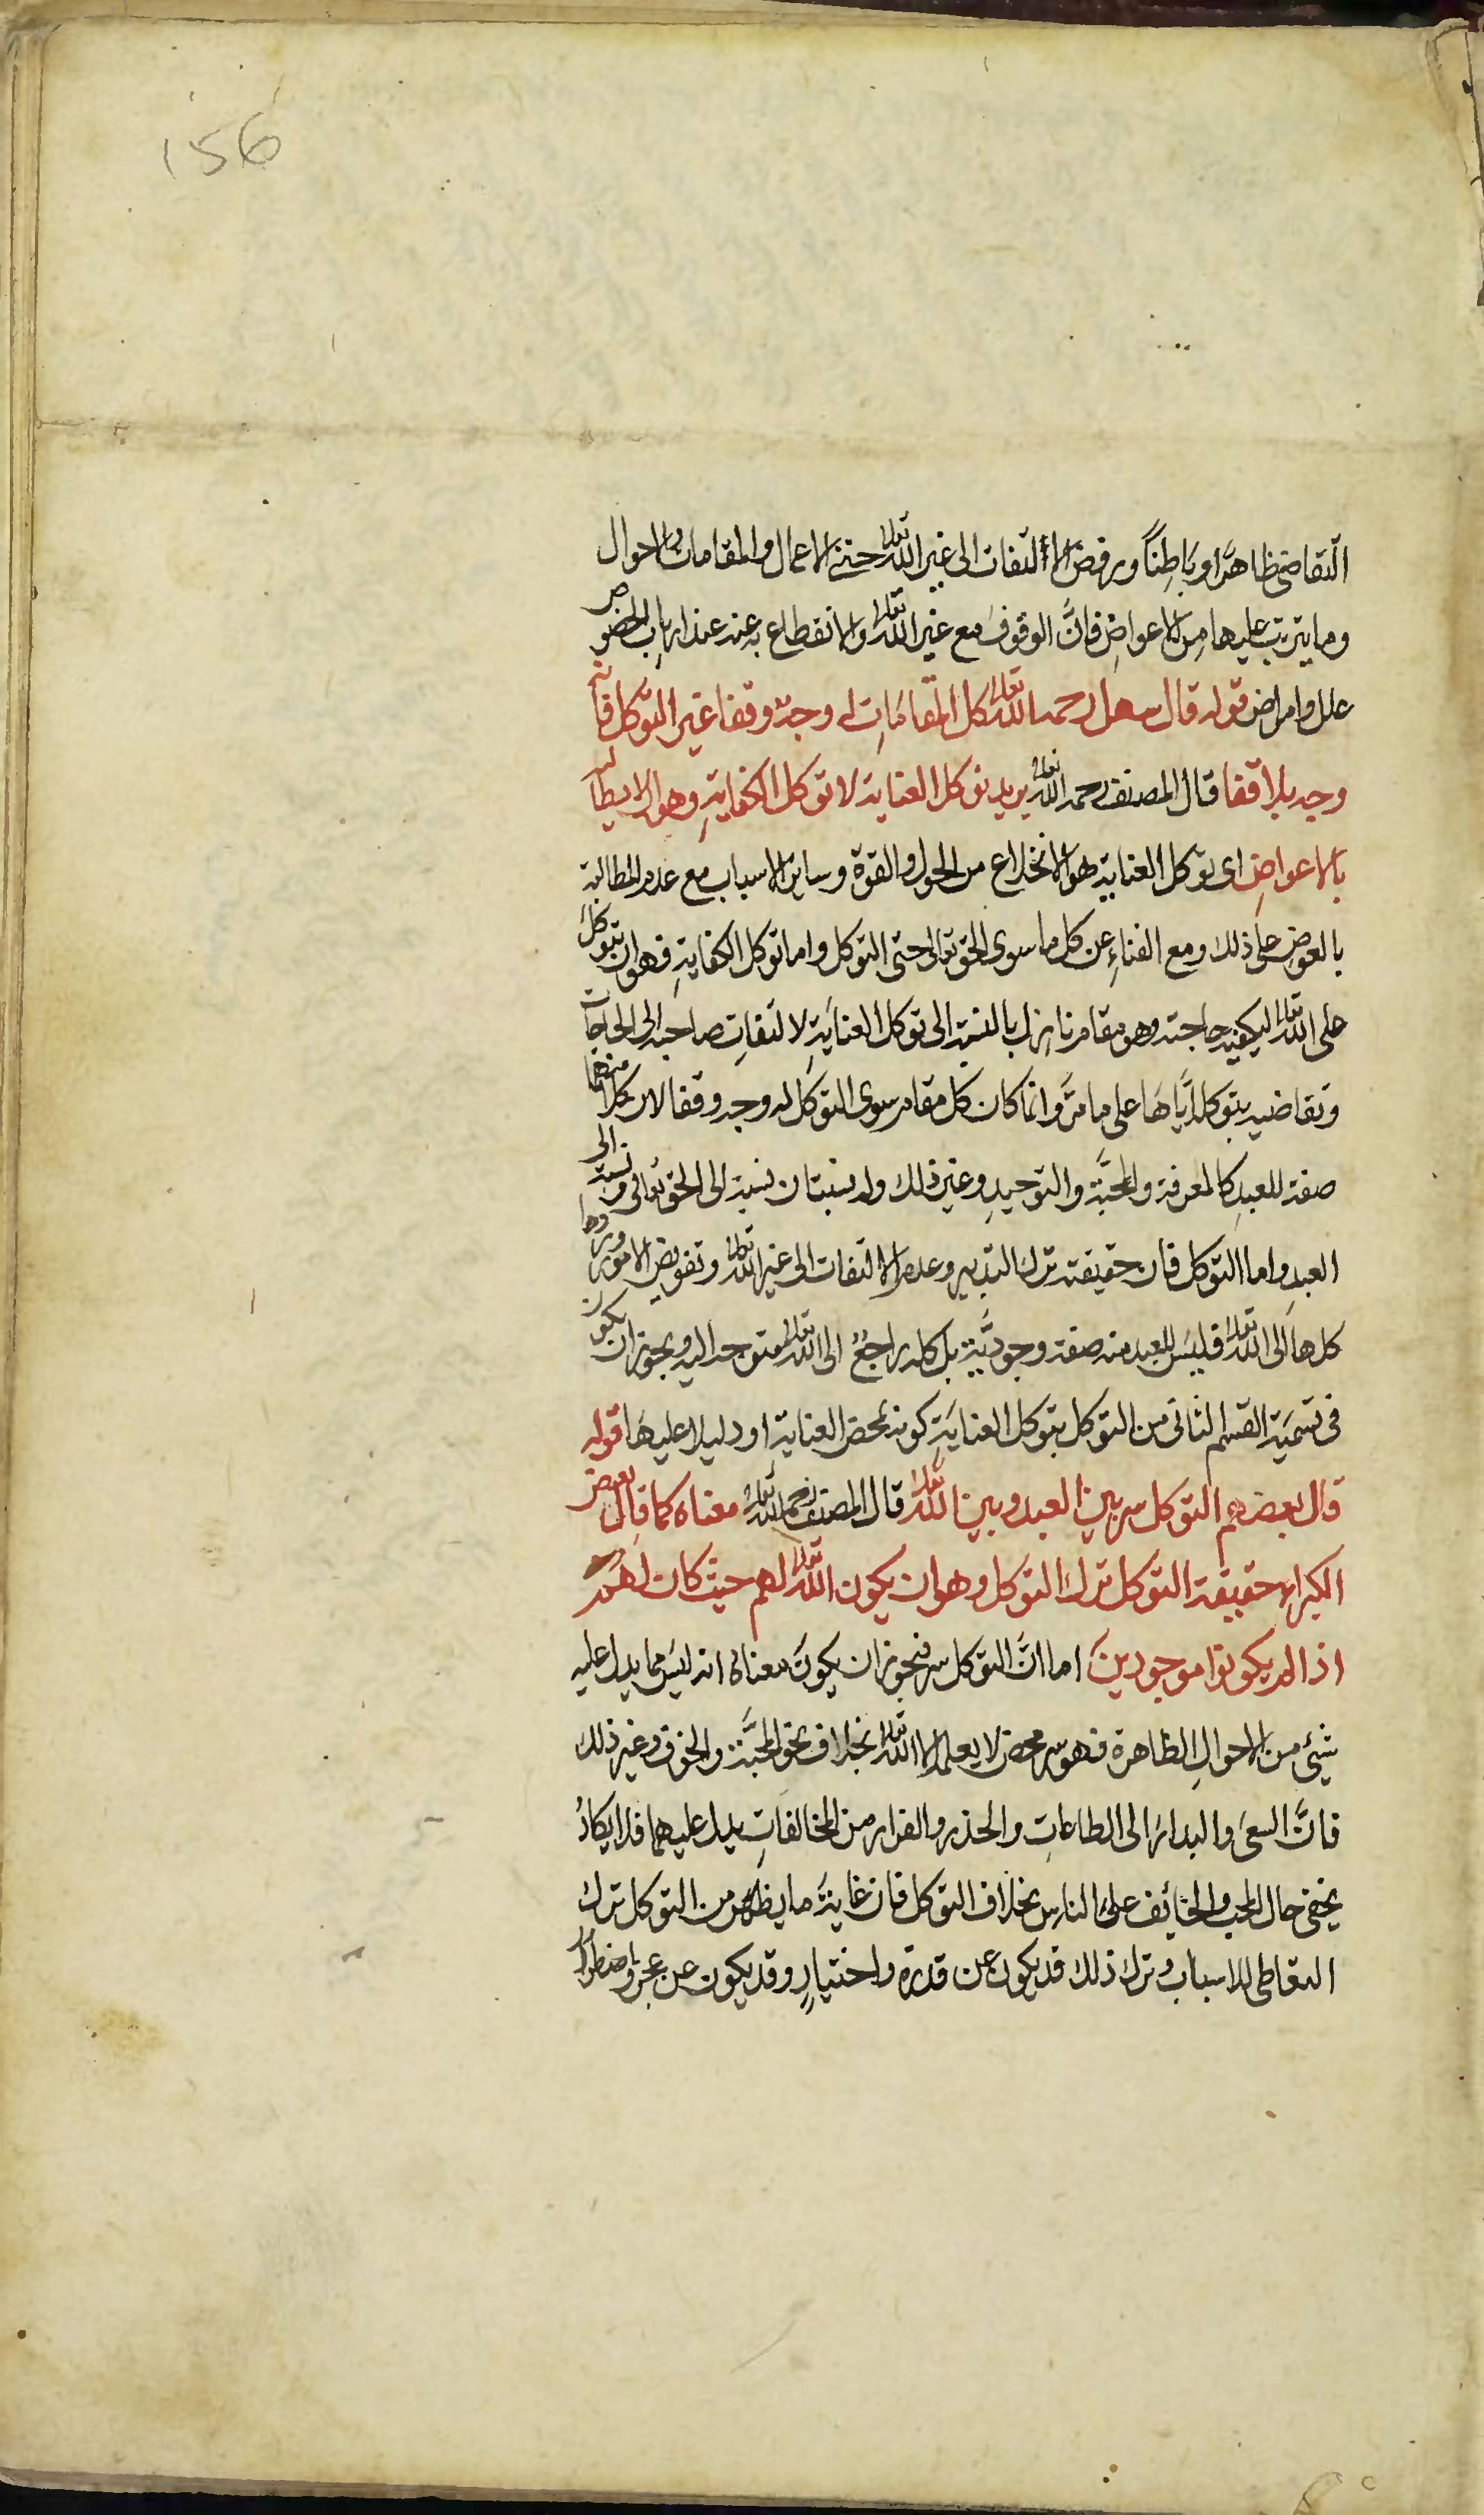 156
التقاضى ظاهرا وباطنا ورفض الالتفات الى غير الله تعالى حتى الاعمال والمقامات والاحوال
وما يترتب عليها من الاعواض فان الوقوف مع غير الله تعالى والانقطاع به عنه عند ارباب الحضور
علل وامراض قوله قال سهل رحمه الله تعالى كل المقامات له وجه وقفا غير التوكل فانه
وجه بلا قفا قال المصنف رحمه الله تعالى يريد توكل العناية لا توكل الكفاية وهو ان لا يطالبه
بالاعواض اى توكل العناية هو الانخلاع من الحول والقوة وساير الاسباب مع عدم المطالبة
بالعوض على ذلك ومع الفناء عن كل ما سوى الحق تعالى حتى التوكل واما توكل الكفاية فهو ان يتوكل
على الله تعالى ليكفيه حاجته وهو مقام نازل بالنسبة الى توكل العناية لالتفات صاحبه الى الحاجات
وتقاضيه بتوكله اياها على ما مر وانما كان كل مقام سوى التوكل له وجه وقفا لان كلا منها
صفة للعبد كالمعرفة والمحبة والتوحيد وغير ذلك وله نسبتان نسبة الى الحق تعالى ونسبة الى
العبد واما التوكل فان حقيقته ترك التدبير وعدم الالتفات الى غير الله تعالى وتفويض الامور وردها
كلها الى الله تعالى فليس للعبد منه صفة وجودية بل كله راجع الى الله تعالى متوجه اليه ويجوز ان يكون
فى تسمية القسم الثانى من التوكل بتوكل العناية كونه بمحض العناية او دليلا عليها قوله
قال بعضهم التوكل سر بين العبد وبين الله تعالى قال المصنف رحمه الله تعالى معناه كما قال بعض
الكبراء حقيقة التوكل ترك التوكل وهو ان يكون الله تعالى لهم حيث كان لهم
اذ لم يكونوا موجودين اما ان التوكل سر فيجوز ان يكون معناه انه ليس مما يدل عليه
شيئ من الاحوال الظاهرة فهو سر محض لا يعلمه الا الله تعالى بخلاف نحو المحبة والخوف وغير ذلك
فان السعى والبدار الى الطاعات والحذر والفرار من المخالفات يدل عليهما فلا يكاد
يخفى حال المحب والخائف على الناس بخلاف التوكل فان غاية ما يظهر من التوكل ترك
التعاطى للاسباب وترك ذلك قد يكون عن قدرة واختيار وقد يكون عن عجز واضطرار